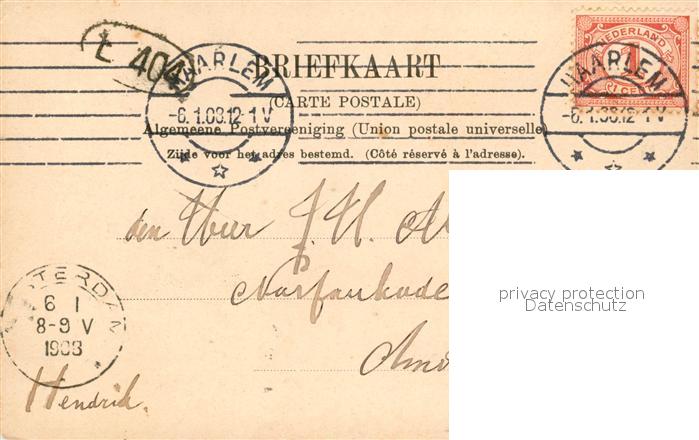 L 404
NEDERLAND
1
CENT
BRIEFKAART
(CARTE POSTALE)
Algemeene Postvereeniging (Union postale universelle)
Zijde voor het adres bestemd. (Côté réservé à l'adresse).
HAARLEM
-6.1.08.12-1 V
HAARLEM
-6.1.08.12-1 V
den Heer J. H. A
privacy protection
Datenschutz
AMSTERDAM
6 1
8-9 V
1908
Hendrik.